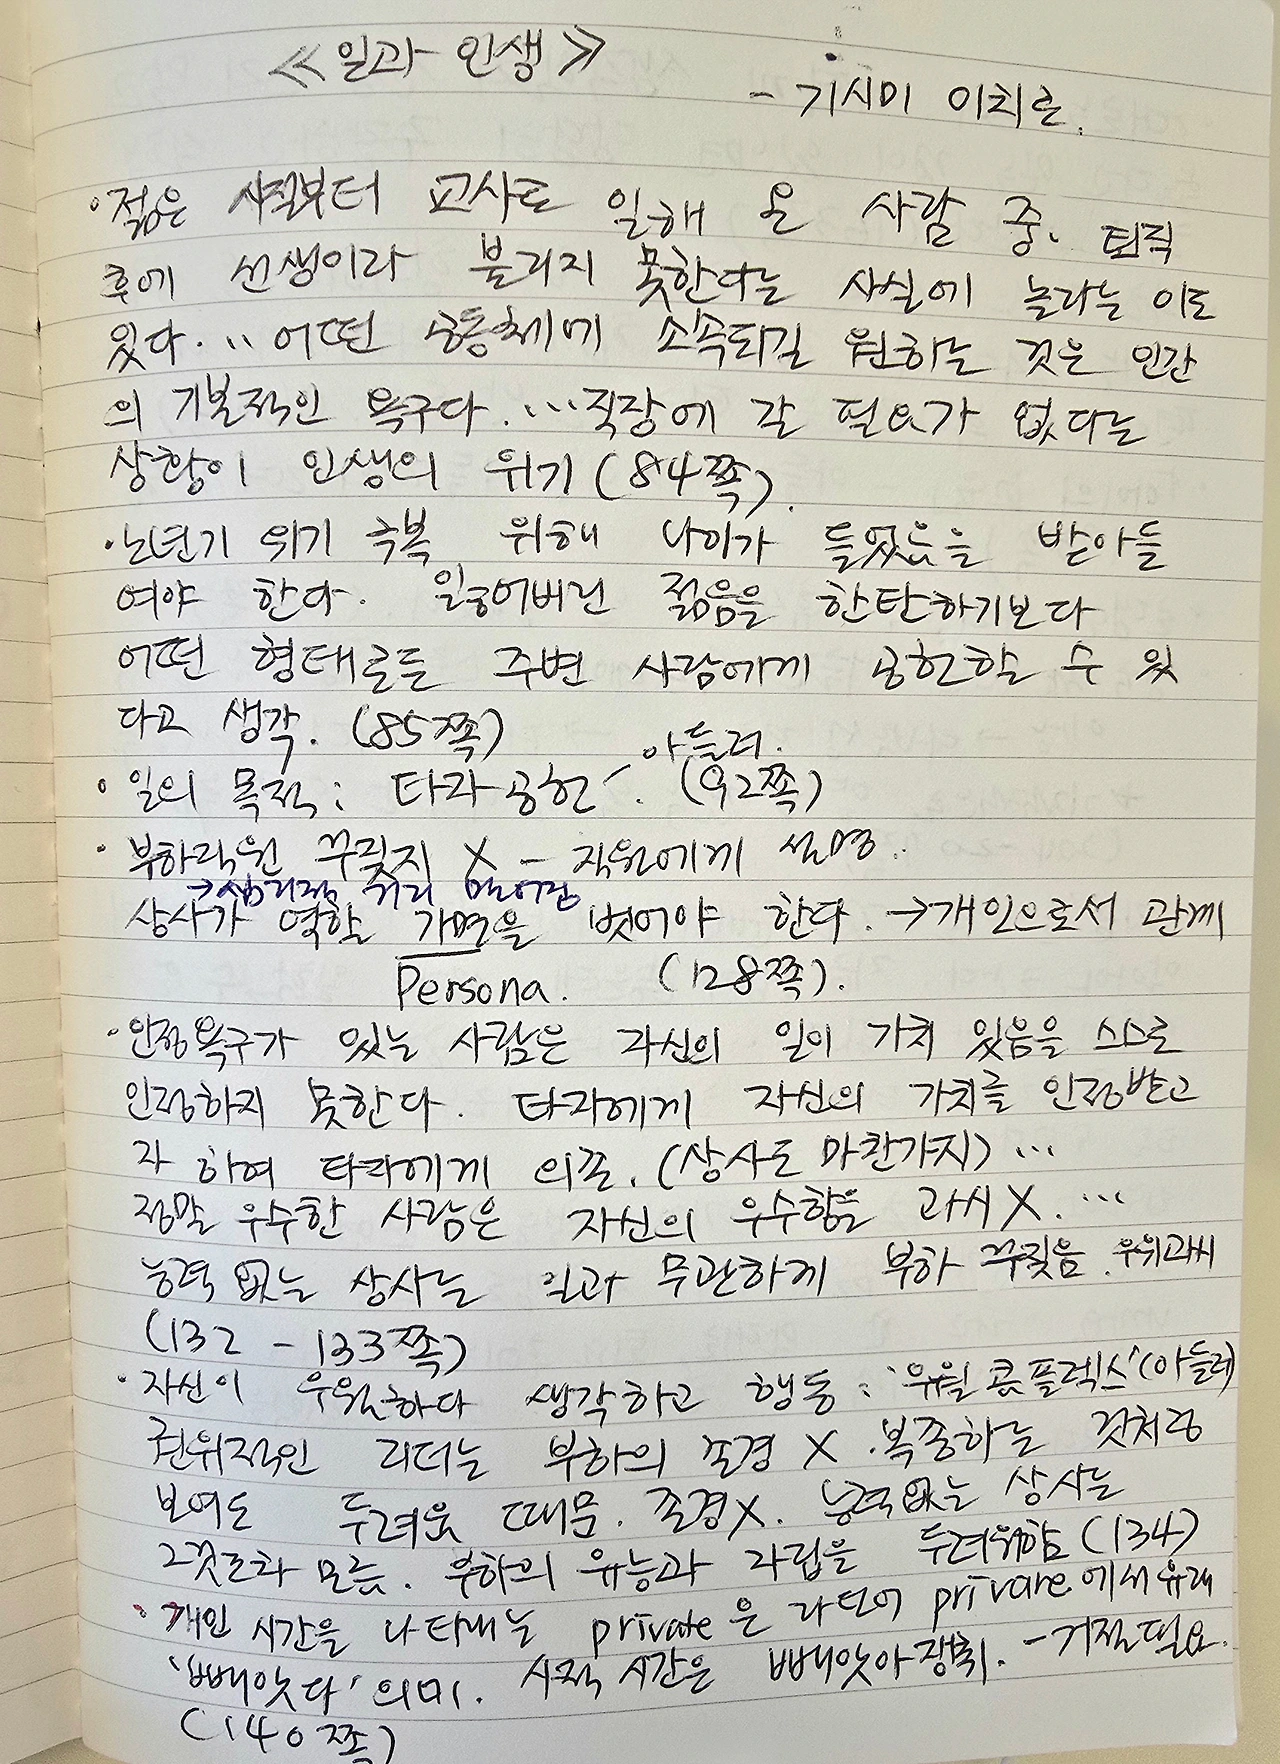 ≪일과 인생≫
- 기시미 이치로.
· 젊은 시절부터 교사로 일해 온 사람 중, 퇴직
후에 선생이라 불리지 못한다는 사실에 놀라는 이도
있다. … 어떤 공동체에 소속되길 원하는 것은 인간
의 기본적인 욕구다. … 직장에 갈 필요가 없다는
상황이 인생의 위기 (84쪽).
· 노년기 위기 극복 위해 나이가 들었음을 받아들
여야 한다. 잃어버린 젊음을 한탄하기보다
어떤 형태로든 주변 사람에게 공헌할 수 있
다고 생각. (85쪽)
아들러.
· 일의 목적 : 타자공헌. (92쪽)
· 부하직원 꾸짖지 X - 직원에게 설명.
→심리적 거리 멀어짐
상사가 역할 가면을 벗어야 한다. →개인으로서 관계
Persona. (128쪽).
· 인정욕구가 있는 사람은 자신의 일이 가치 있음을 스스로
인정하지 못한다. 타자에게 자신의 가치를 인정받고
자 하여 타자에게 의존. (상사도 마찬가지) …
정말 우수한 사람은 자신의 우수함을 과시 X. …
능력 없는 상사는 일과 무관하게 부하 꾸짖음. 우위과시
(132 - 133쪽)
· 자신이 우월하다 생각하고 행동 : '우월 콤플렉스' (아들러)
권위적인 리더는 부하의 존경 X. 복종하는 것처럼
보여도 두려움 때문. 존경X. 능력없는 상사는
그것조차 모름. 부하의 유능과 자립을 두려워함 (134)
· 개인 시간을 나타내는 private은 라틴어 privare에서 유래
'빼앗다' 의미. 사적 시간은 빼앗아 쟁취. - 거절필요.
(140쪽)